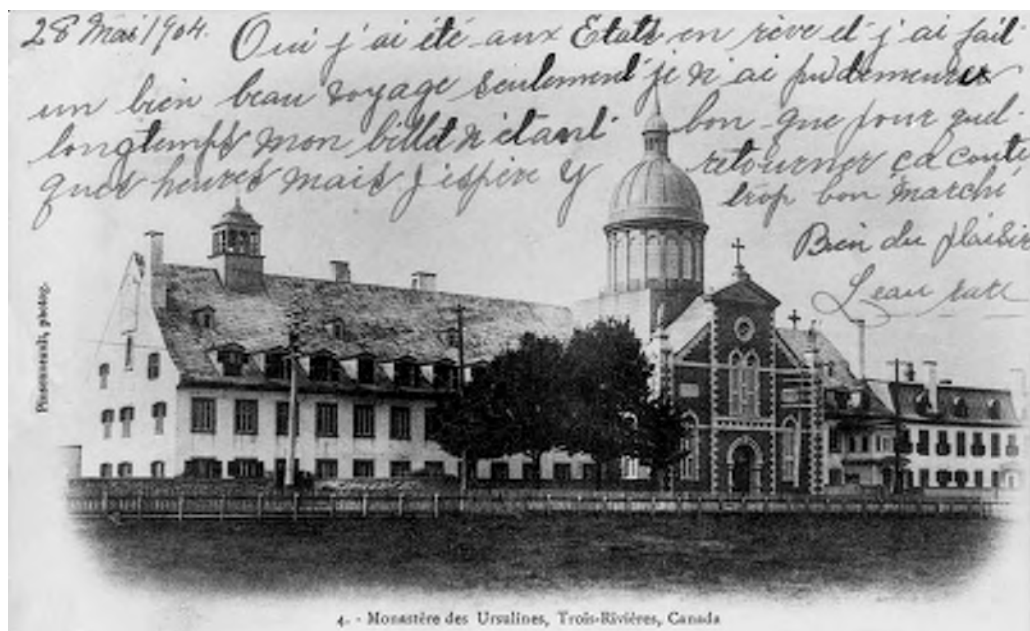 28 Mai 1904. Oui j'ai été aux Etats en rève et j'ai fait
un bien beau voyage seulement je n'ai pu demeurer
longtemps mon billet n'étant bon que pour quel-
ques heures mais j'espère y retourner ça coute
trop bon marché
Bien du plaisir
Pinsonneault, photog.
4. - Monastère des Ursulines, Trois-Rivières, Canada